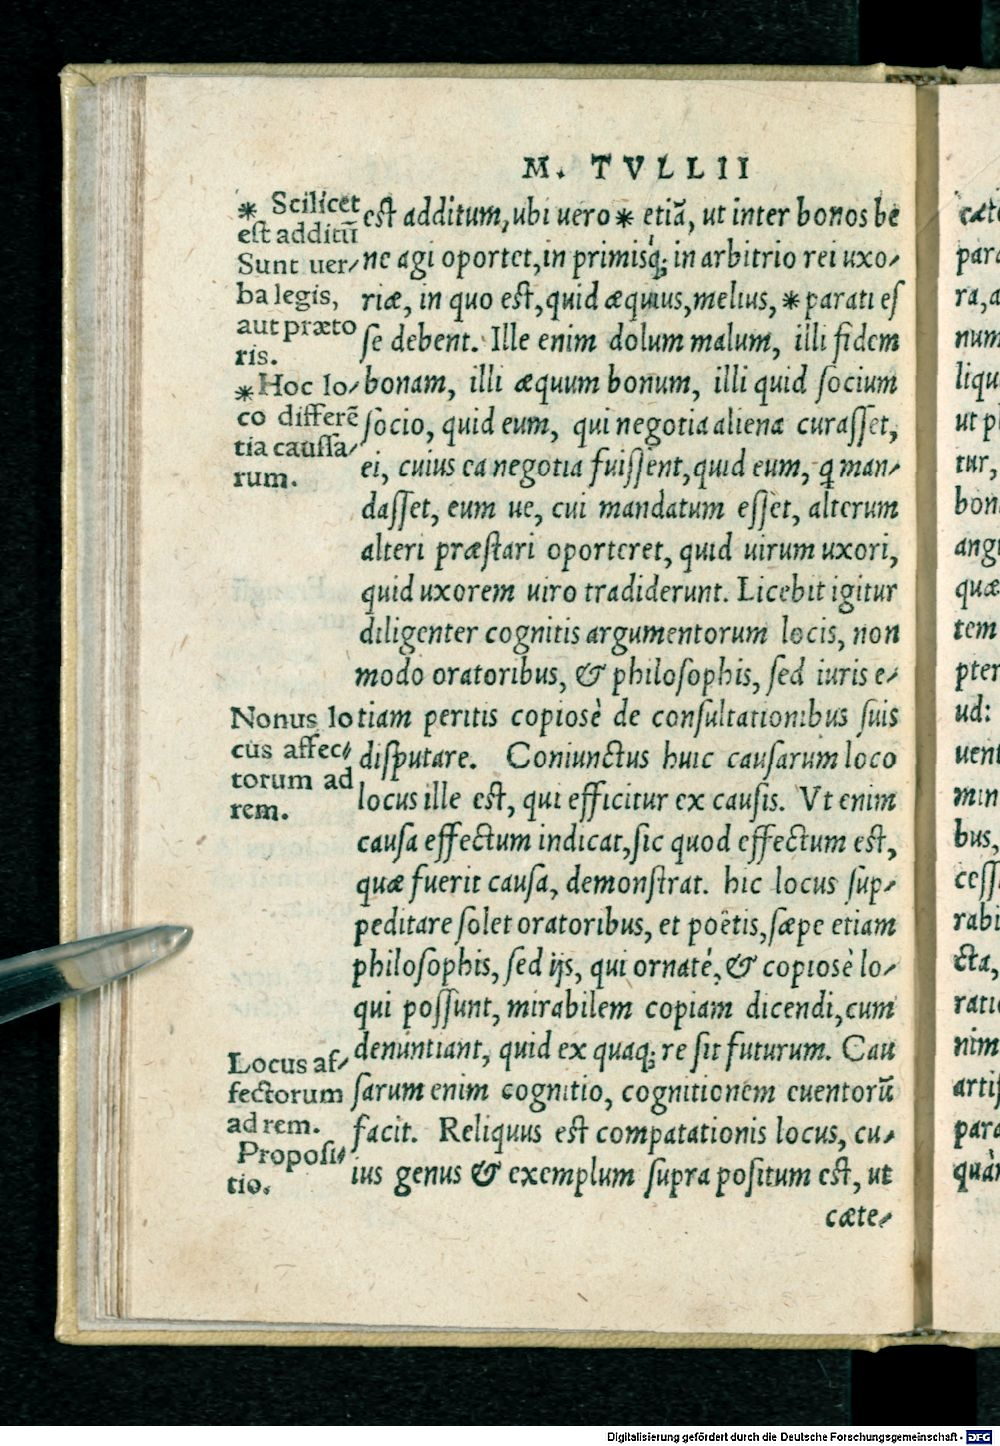 M. TVLLII
* Scilicet
est additū
Sunt uer/
ba legis,
aut præto
ris.
*Hoc lo/
co differē
tia caussa/
rum.
est additum, ubi uero * etiā, ut inter bonos be
ne agi oportet, in primisq́; in arbitrio rei uxo/
riæ, in quo est, quid æquius, melius, * parati es
se debent. Ille enim dolum malum, illi fidem
bonam, illi æquum bonum, illi quid socium
socio, quid eum, qui negotia aliena curasset,
ei, cuius ea negotia fuissent, quid eum, q man/
dasset, eum ue, cui mandatum esset, alterum
alteri præstari oporteret, quid uirum uxori,
quid uxorem uiro tradiderunt. Licebit igitur
diligenter cognitis argumentorum locis, non
modo oratoribus, & philosophis, sed iuris e/
tiam peritis copiosè de consultationibus suis
disputare. Coniunctus huic causarum loco
locus ille est, qui efficitur ex causis. Vt enim
causa effectum indicat, sic quod effectum est,
quæ fuerit causa, demonstrat. hic locus sup/
peditare solet oratoribus, et poêtis, sæpe etiam
philosophis, sed ijs, qui ornatè, & copiosè lo/
qui possunt, mirabilem copiam dicendi, cum
denuntiant, quid ex quaq; re sit futurum. Cau
sarum enim cognitio, cognitionem euentorū
facit. Reliquus est compatationis locus, cu/
ius genus & exemplum supra positum est, ut
cæte/
Nonus lo
cus affec/
torum ad
rem.
Locus af/
fectorum
ad rem.
Proposi/
tio.
cæte
para
ra, a
num
liqu
ut p
tur,
bon
ang
quæ
tem
pter
ud:
uent
min
bus,
cess
rabi
cta,
ratio
nim
artis
para
quàm
Digitalisierung gefördert durch die Deutsche Forschungsgemeinschaft - DFG